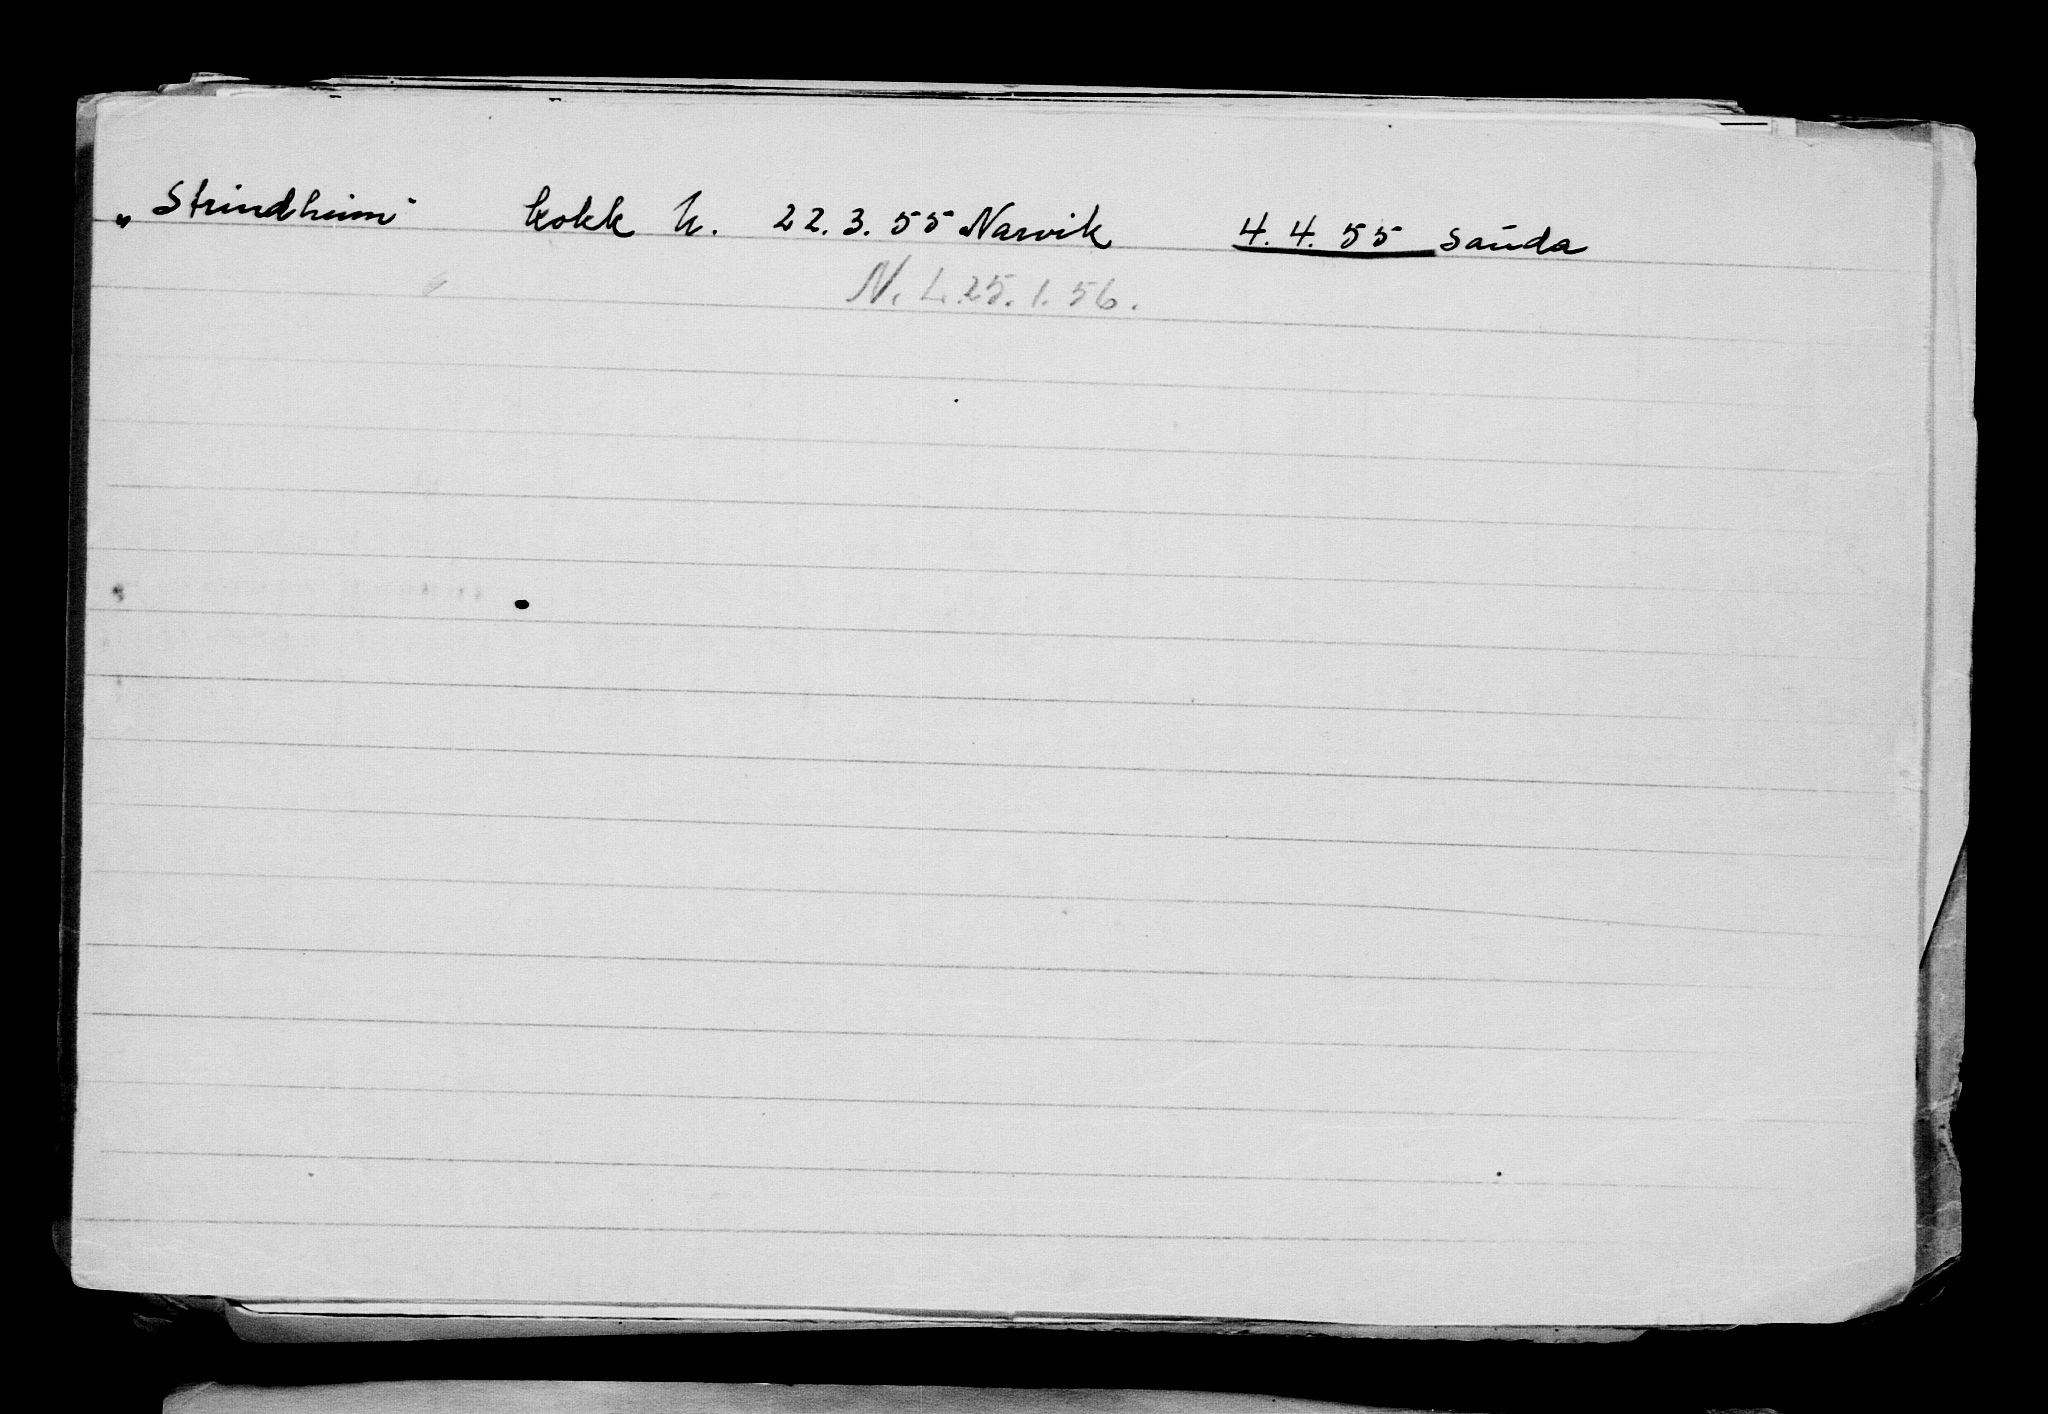 „Strindheim" kokk h. 22.3.55 Narvik 4.4.55 Sauda
N. L. 25.1.56.